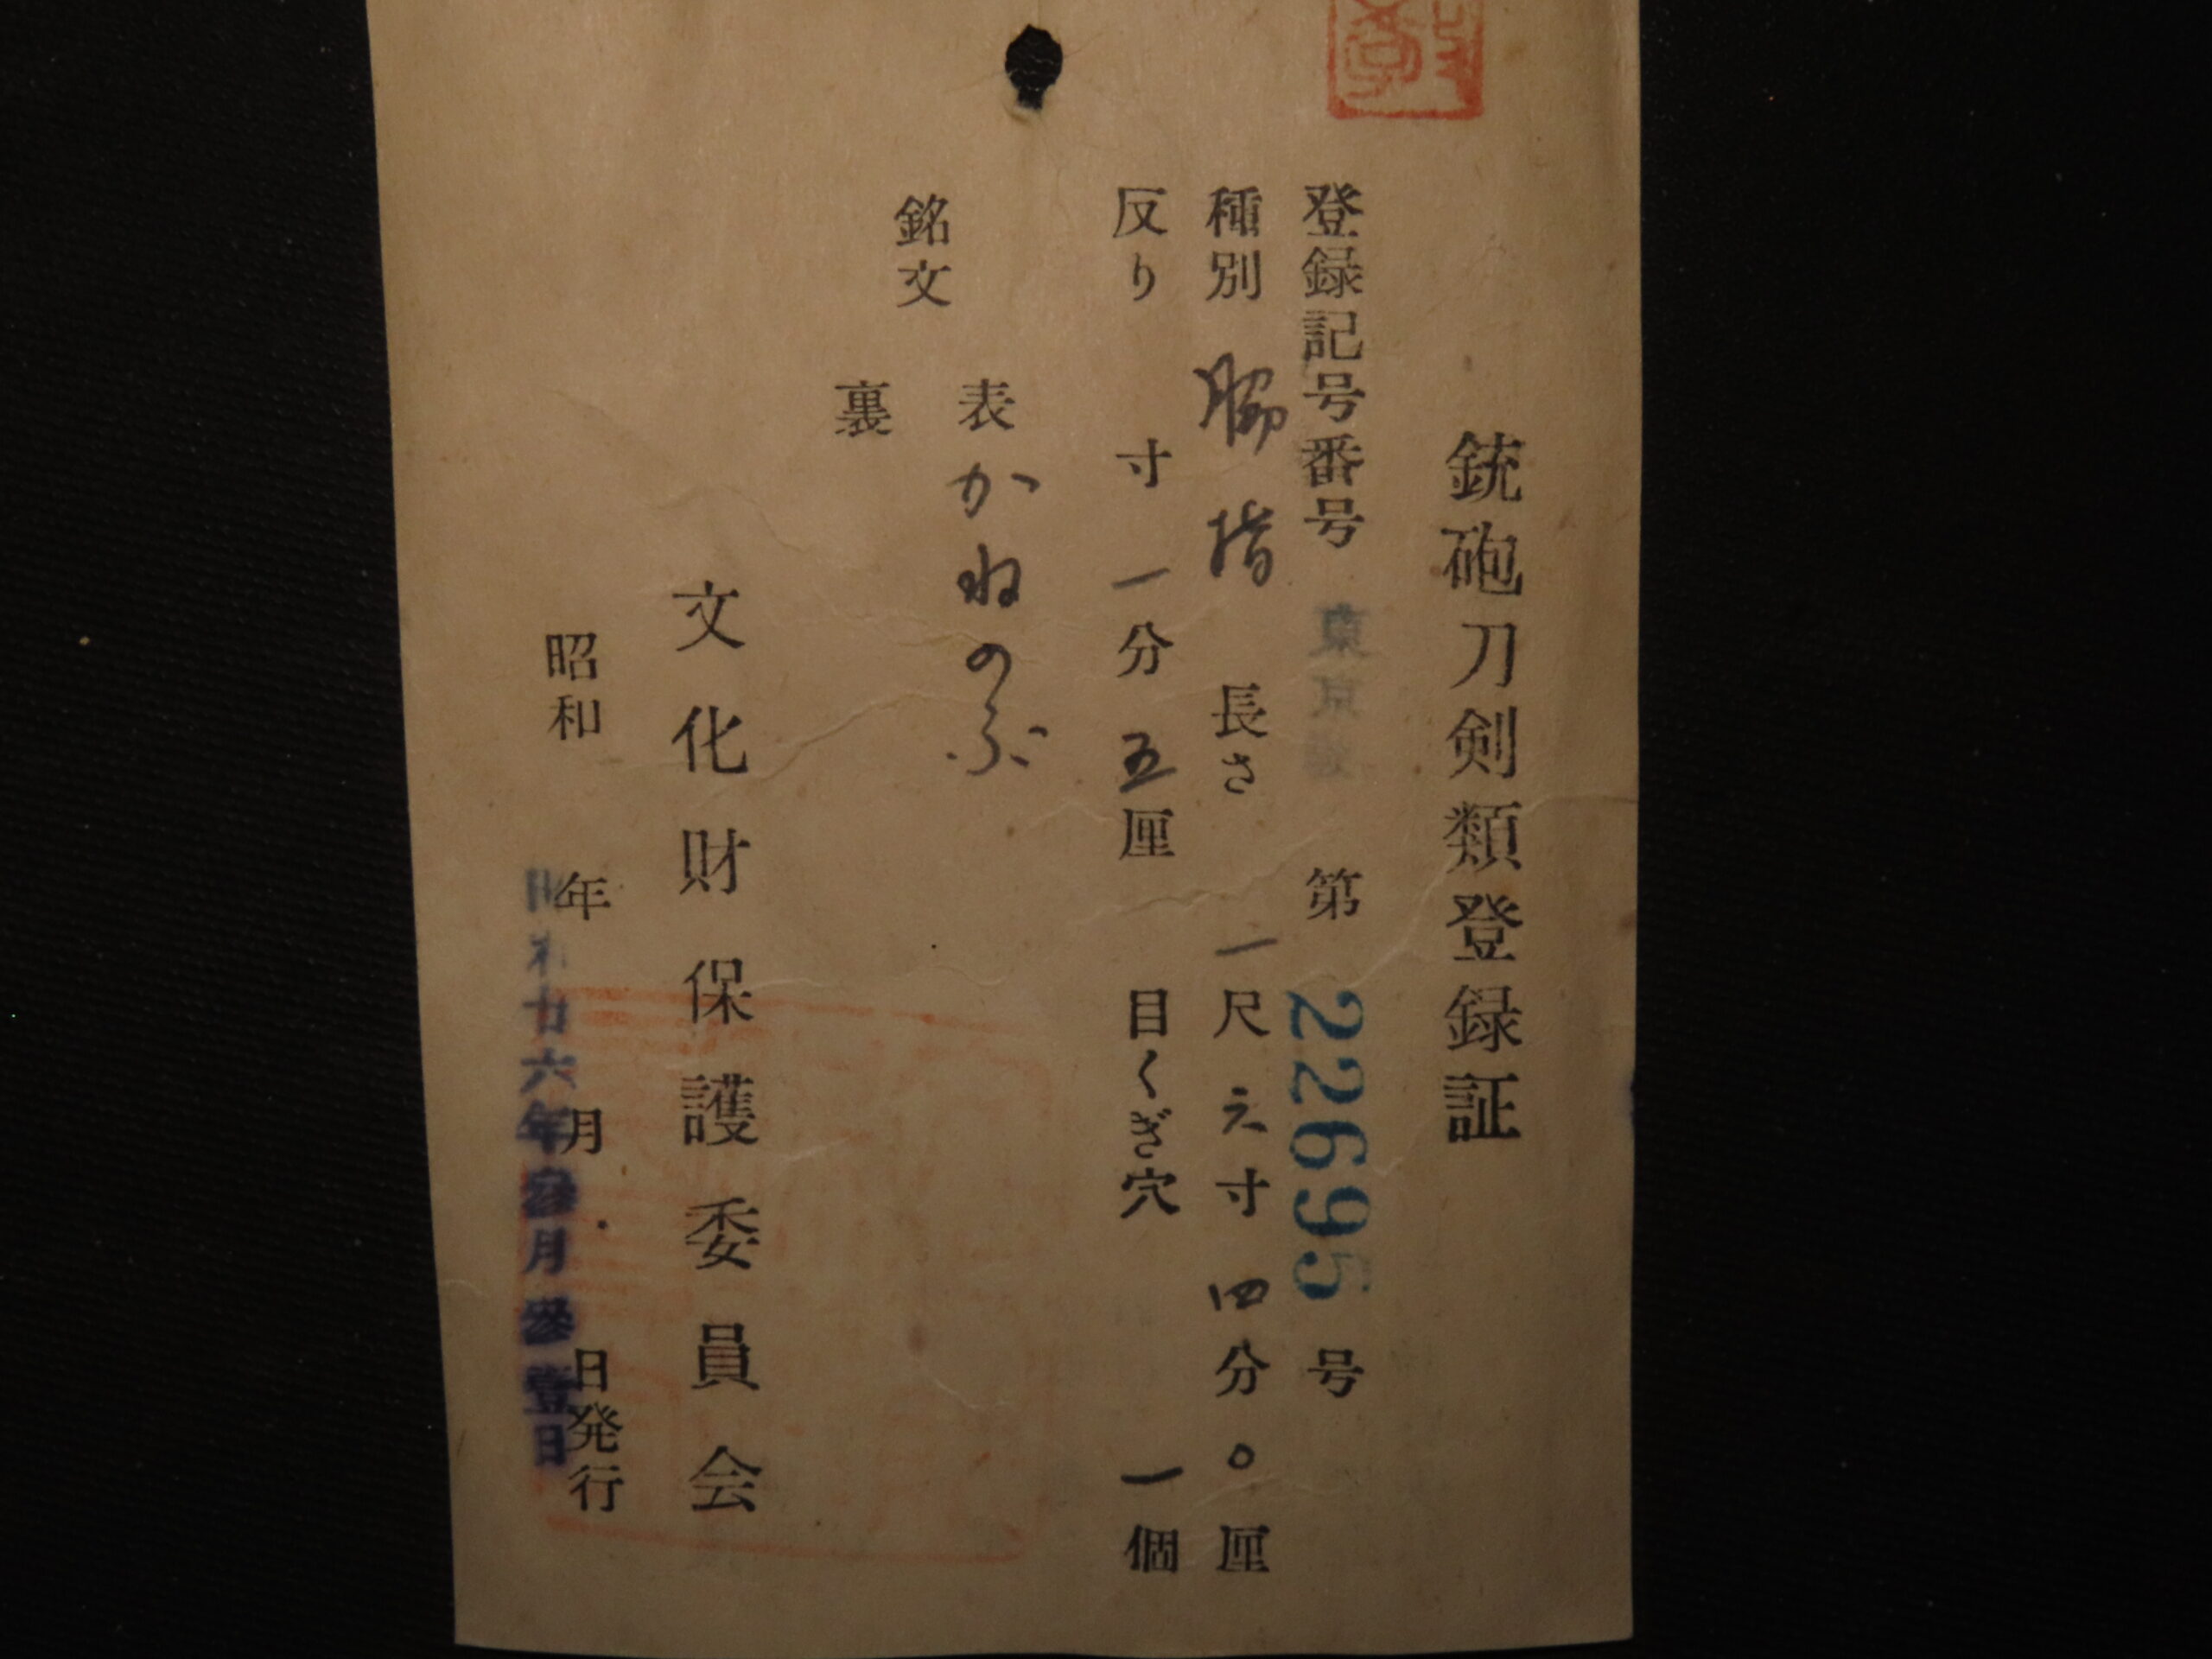 銃砲刀剣類登録証
登録記号番号 東京 第22695号
種別 脇指 長さ 一尺 六寸 四分 〇厘
反り 寸 一分 五厘 目くぎ穴 一個
銘文
表 かねのぶ
裏
文化財保護委員会
昭和 年 月 日発行
昭和廿六年参月参壹日